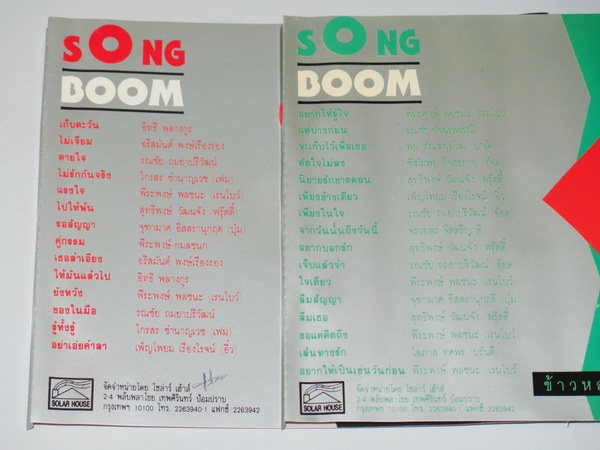 SONG
BOOM
เก็บตะวัน อิทธิ พลางกูร
ไม่เจียม อริสมันต์ พงษ์เรืองรอง
ตายใจ รณชัย ถมยาปริวัฒน์
ไม่รักกันจริง ไกรสร ชำนาญเวช (เฟม)
แรงใจ พีระพงษ์ พลชนะ (เรนโบว์)
ไปให้พ้น สุทธิพงษ์ วัฒนจัง (ฟรุ๊ตตี้)
รอสัญญา จุฑามาศ อิสสรานุกฤต (ปุ้ม)
คู่กรรม พีระพงษ์-กมลชนก
เธอลำเอียง อริสมันต์ พงษ์เรืองรอง
ให้มันแล้วไป อิทธิ พลางกูร
ยังหวัง พีระพงษ์ พลชนะ (เรนโบว์)
ของในมือ รณชัย ถมยาปริวัฒน์
รู้ทั้งรู้ ไกรสร ชำนาญเวช (เฟม)
อย่าเอ่ยคำลา เพ็ญโพยม เรืองโรจน์ (อิ๋ว)
SOLAR HOUSE
จัดจำหน่ายโดย โซล่าร์ เฮ้าส์
2-4 พลับพลาไชย เทพศิรินทร์ ป้อมปราบ
กรุงเทพฯ 10100 โทร. 2263940-1 แฟกซ์ 2263942
SONG
BOOM
อยากให้รู้ใจ พีระพงษ์ พลชนะ (เรนโบว์)
แต่ปางก่อน รณชัย
จะเก็บไว้เพื่อเธอ
ตัดใจไม่ลง
นิยายรักยาตตอน สุทธิพงษ์ วัฒนจัง (ฟรุ๊ตตี้)
เพียงข้างเดียว เพ็ญโพยม เรืองโรจน์ (อิ๋ว)
เพียงในใจ รณชัย ถมยาปริวัฒน์
จากวันนั้นถึงวันนี้
อยากบอกรัก สุทธิพงษ์ วัฒนจัง (ฟรุ๊ตตี้)
เจ็บแล้วจำ รณชัย ถมยาปริวัฒน์
ใจเดียว พีระพงษ์ พลชนะ (เรนโบว์)
ลืมสัญญา จุฑามาศ อิสสรานุกฤต (ปุ้ม)
ลืมเธอ สุทธิพงษ์ วัฒนจัง (ฟรุ๊ตตี้)
ขอแค่คิดถึง พีระพงษ์ พลชนะ (เรนโบว์)
เส้นทางรัก
อยากให้เป็นเช่นวันก่อน พีระพงษ์ พลชนะ (เรนโบว์)
SOLAR HOUSE
จัดจำหน่ายโดย โซล่าร์ เฮ้าส์
2-4 พลับพลาไชย เทพศิรินทร์ ป้อมปราบ
กรุงเทพฯ 10100 โทร. 2263940-1 แฟกซ์ 2263942